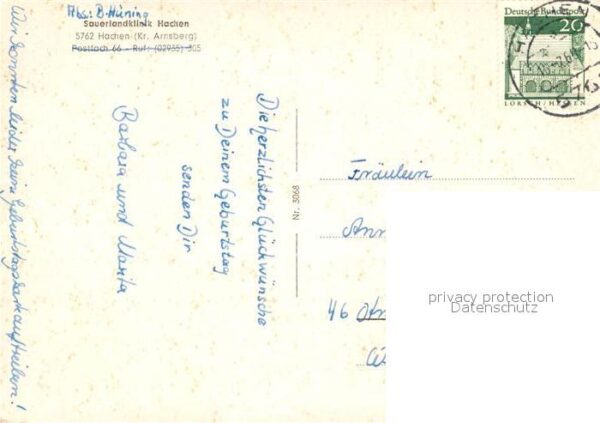 Abs: B. Hüning
Sauerlandklinik Hachen
5762 Hachen (Kr. Arnsberg)
Postfach 66 - Ruf: (02935) 305
Deutsche Bundespost
20
LORSCH/HESSEN
Die herzlichsten Glückwünsche
zu Deinem Geburtstag
senden Dir
Barbara und Marita
Wir konnten leider keine Geburtstagskarte auftreiben!
Nr. 3068
Fräulein
Ann
46
privacy protection
Datenschutz